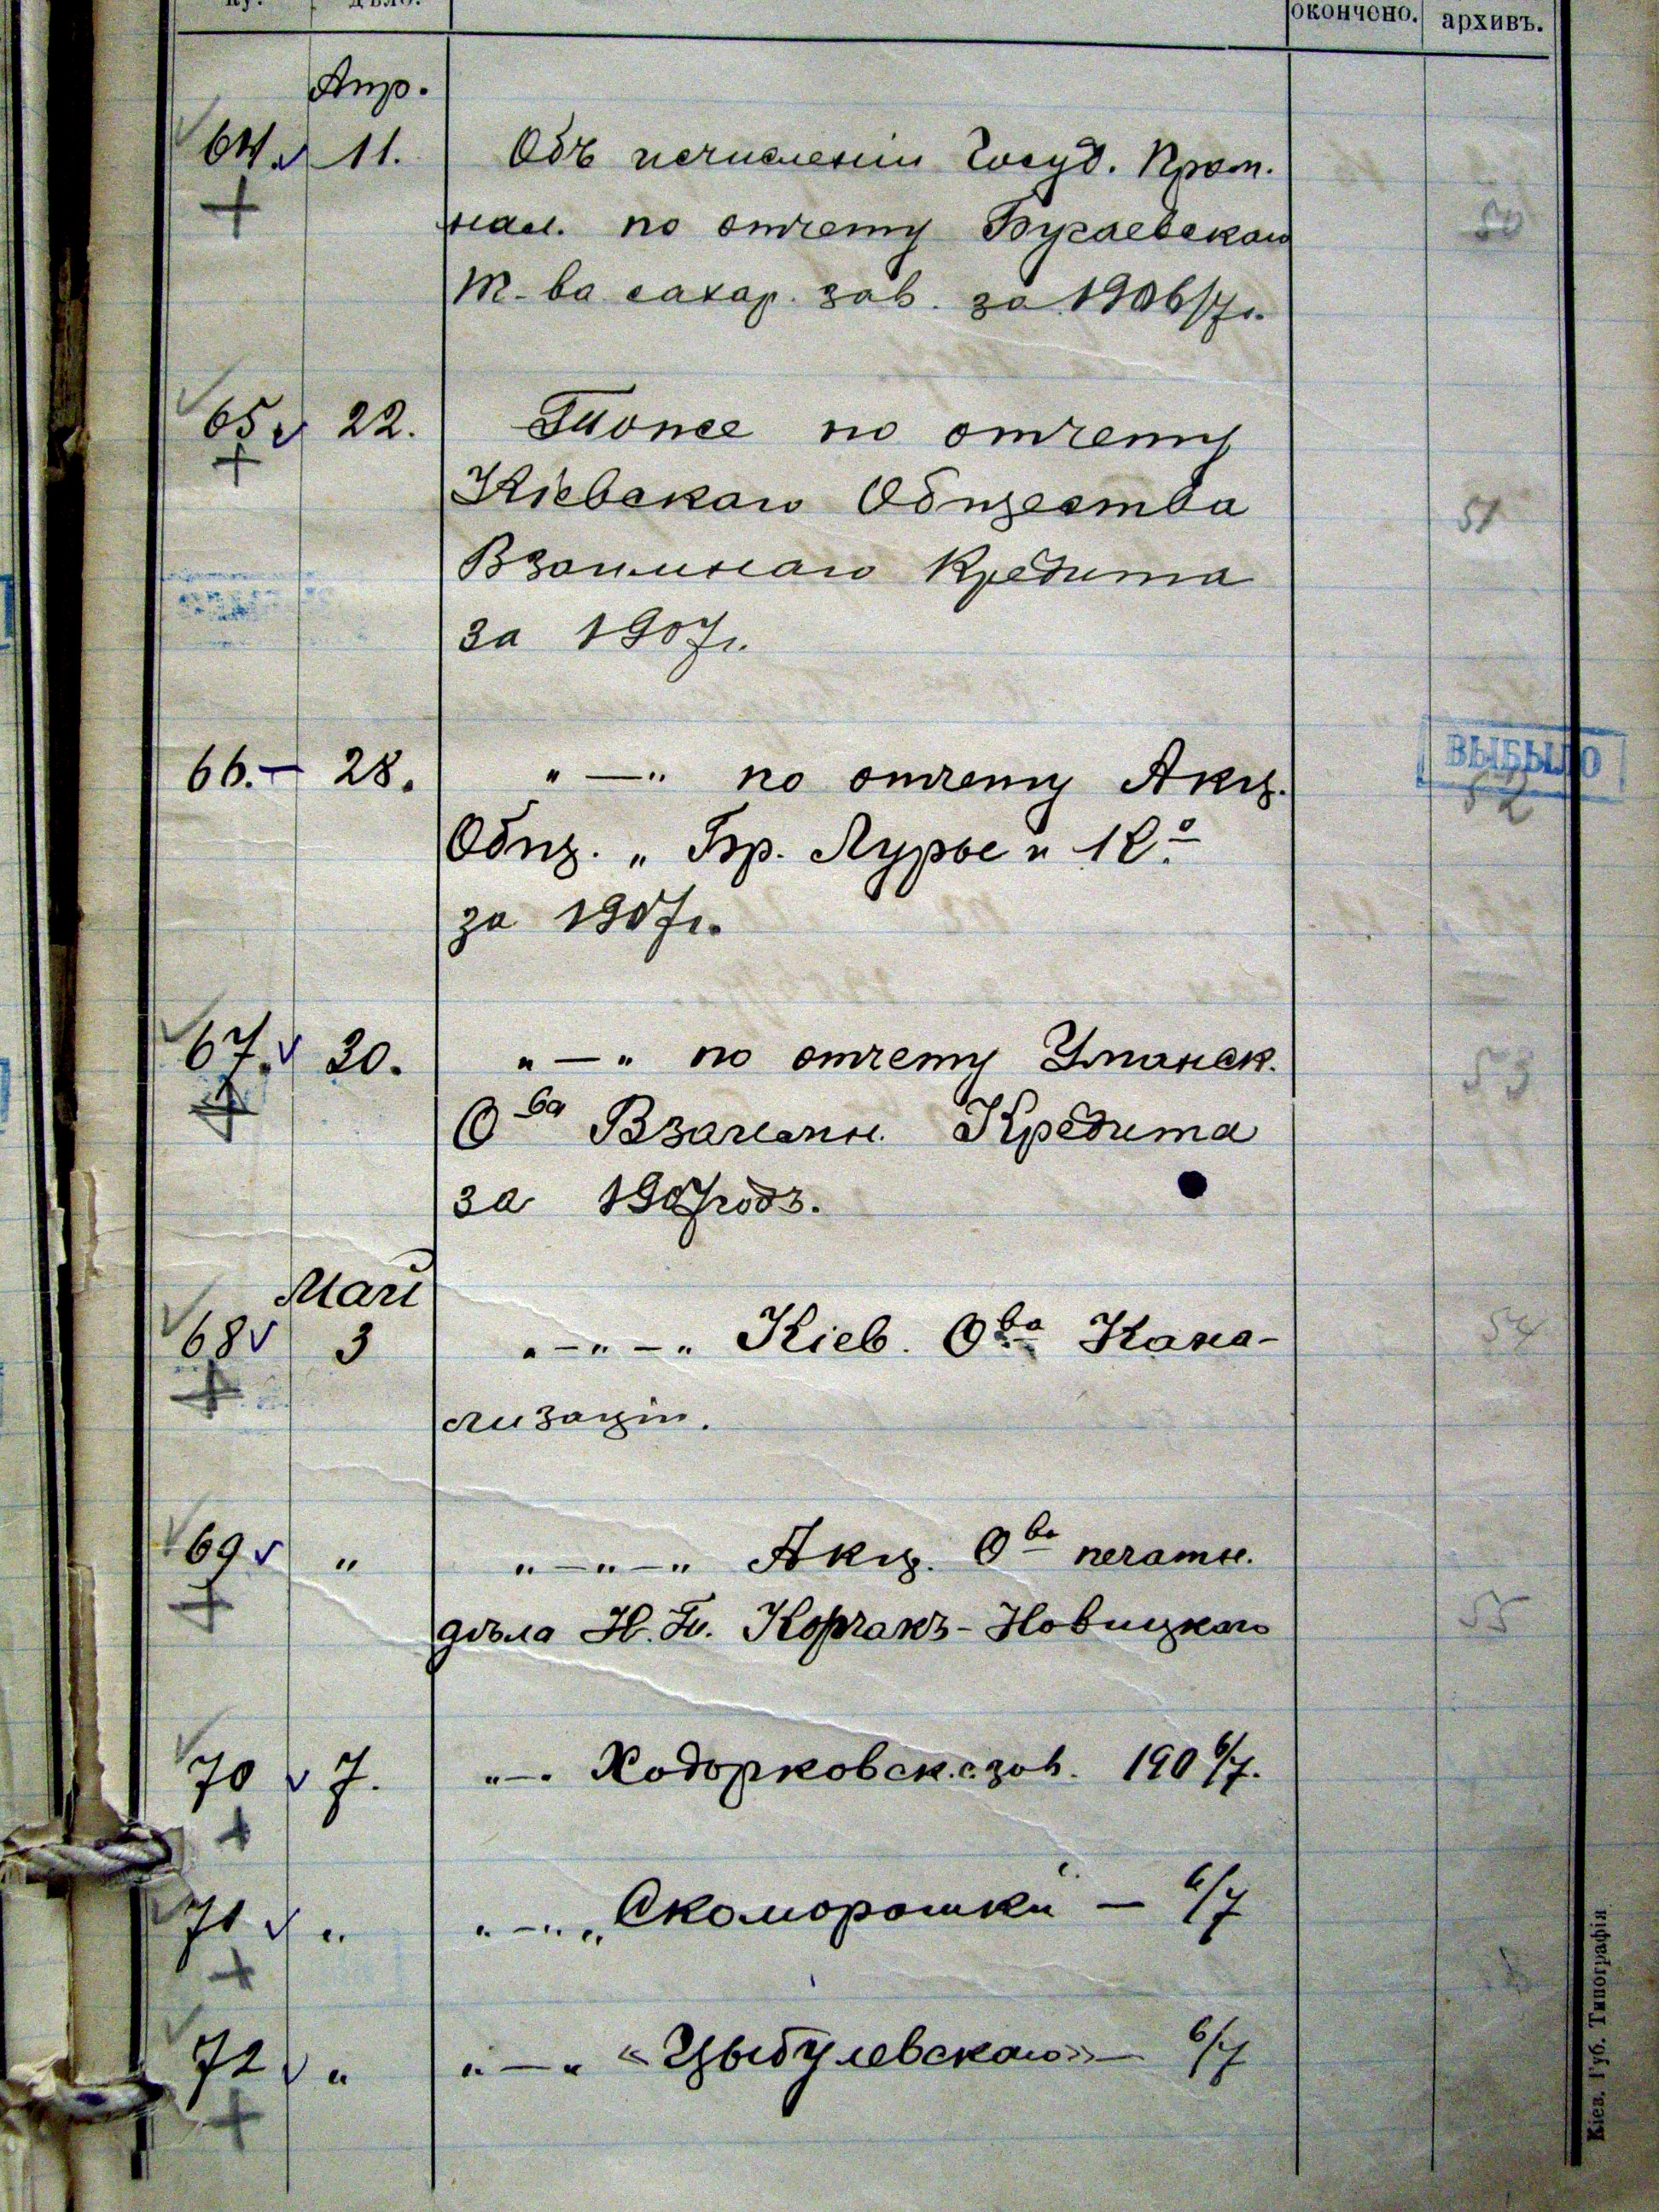 ку. дѣло. окончено. архивъ.
Апр.
64. 11. Объ исчисленіи Госуд. Пром.
нал. по отчету Бугаевскаго 50
Т-ва сахар. зав. за 1906/7 г.
65 22. Тоже по отчету
Кіевскаго Общества 51
Взаимнаго Кредита
за 1907 г.
66. — 28. „ — „ по отчету Акц. ВЫБЫЛО 52
Общ. „ Бр. Лурье и Ко
за 1907 г.
67. 30. „ — „ по отчету Уманск. 53
О-ва Взаимн. Кредита
за 1907 годъ.
Май
68 3 „ — „ — „ Кіев. О-ва Кана- 54
лизаціи.
69 „ „ — „ — „ Акц. О-ва печатн.
дѣла Н. Т. Корчакъ-Новицкаго 55
70 7. „ — „ Ходорковск. с. зав. 190 6/7.
71 „ „ — „ „Скоморошки“ — 6/7
72 „ „ — „ «Цыбулевскаго» — 6/7
Кіев. Губ. Типографія